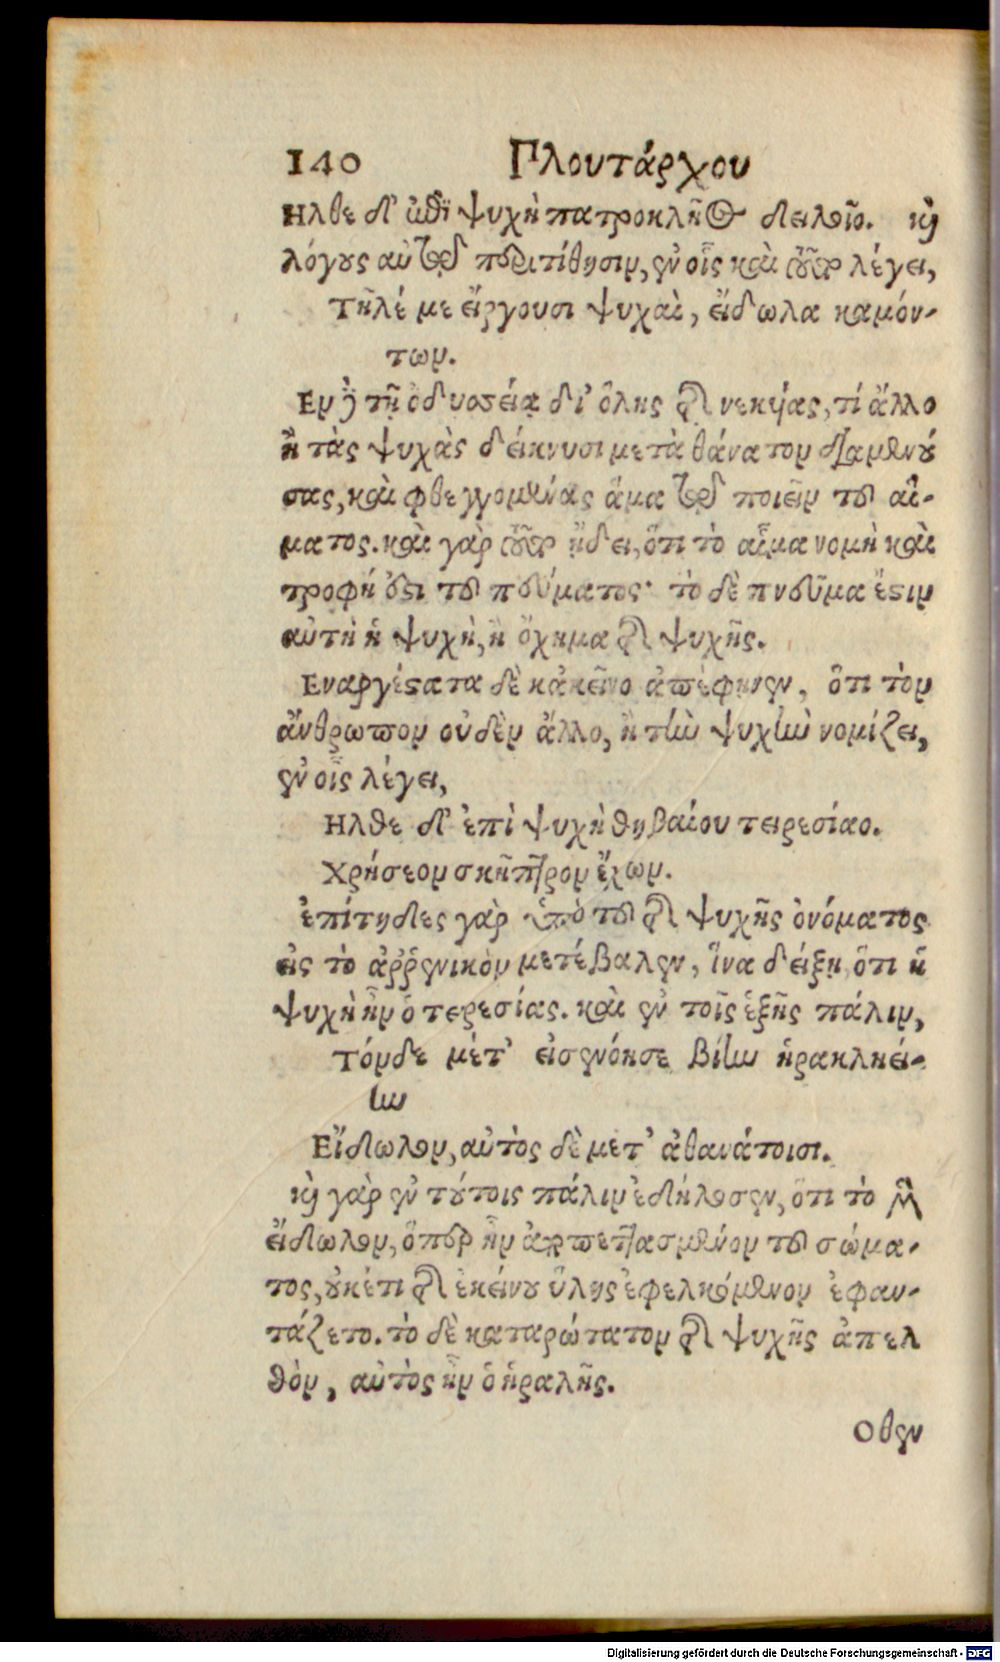 140 Πλουτάρχου
Ηλθε δ' ἐπὶ ψυχὴ πατροκλῆος δειλοῖο. καὶ
λόγους αὐτῷ περιτίθησιν, ἐν οἷς καὶ οὕτω λέγει,
Τῆλέ με εἴργουσι ψυχαὶ, εἴδωλα καμόν-
των.
Εν δὲ τῇ ὀδυσσείᾳ δι' ὅλης τῆς νεκυίας, τί ἄλλο
ἢ τὰς ψυχὰς δείκνυσι μετὰ θάνατον διαμενού
σας, καὶ φθεγγομένας ἅμα τῷ ποιεῖν τοῦ αἵ-
ματος. καὶ γὰρ οὕτω ᾔδει, ὅτι τὸ αἷμα νομὴ καὶ
τροφή ἐστι τοῦ πνεύματος· τὸ δὲ πνεῦμα ἔστιν
αὐτὴ ἡ ψυχὴ, ἢ ὄχημα τῆς ψυχῆς.
Εναργέστατα δὲ κἀκεῖνο ἀπέφηνεν, ὅτι τὸν
ἄνθρωπον οὐδὲν ἄλλο, ἢ τὴν ψυχὴν νομίζει,
ἐν οἷς λέγει,
Ηλθε δ' ἐπὶ ψυχὴ θηβαίου τειρεσίαο.
Χρήσεον σκῆπτρον ἔχων.
ἐπίτηδες γὰρ ἀπὸ τοῦ τῆς ψυχῆς ὀνόματος
εἰς τὸ ἀῤῥενικὸν μετέβαλεν, ἵνα δείξῃ, ὅτι ἡ
ψυχὴ ἦν ὁ τερεσίας. καὶ ἐν τοῖς ἑξῆς πάλιν,
Τόνδε μὲτ' εἰσενόησε βίην ἡρακληεί-
ην
Εἴδωλον, αὐτὸς δὲ μετ' ἀθανάτοισι.
καὶ γὰρ ἐν τούτοις πάλιν ἐδήλωσεν, ὅτι τὸ μὲν
εἴδωλον, ὅπερ ἦν ἀποπεπλασμένον τοῦ σώμα-
τος, οὐκέτι τῆς ἐκείνου ὕλης ἐφελκόμενον ἐφαν-
τάζετο. τὸ δὲ καταρώτατον τῆς ψυχῆς ἀπελ
θὸν, αὐτὸς ἦν ὁ ἡραλῆς.
Οθεν
Digitalisierung gefördert durch die Deutsche Forschungsgemeinschaft - DFG